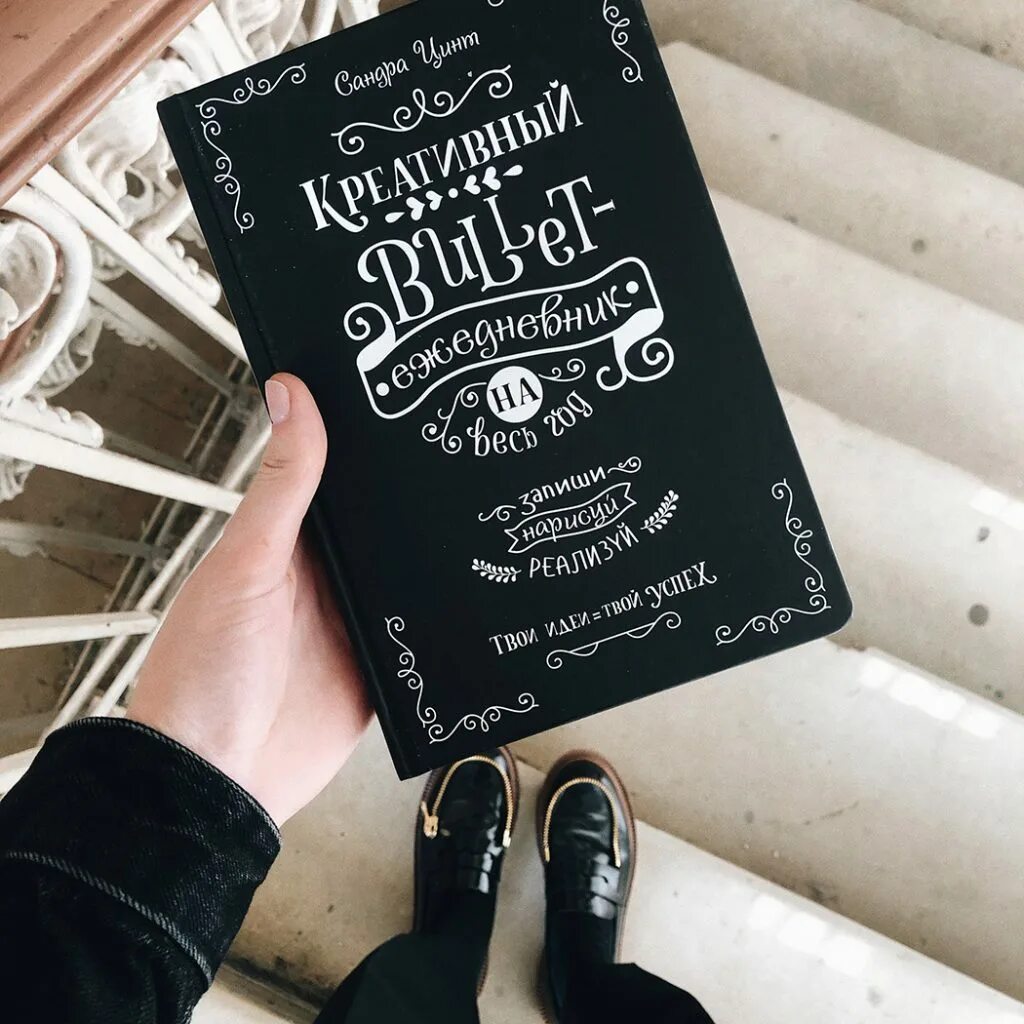 Сандра Цинт
КРЕАТИВНЫЙ
BULLET-
ежедневник
НА
весь год
запиши
нарисуй
РЕАЛИЗУЙ
Твои идеи = твой УСПЕХ